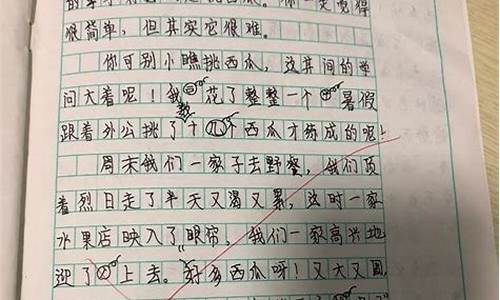 西瓜。你一定觉得
很简单，但其实它很难。
你可别小瞧挑西瓜，这其间的学
问大着呢！我花了整整一个暑假
跟着外公挑了数十个西瓜才练成的呢！
周末我们一家子去野餐，我们顶
着烈日走了半天又渴又累，这时一家
水果店映入了眼帘，我们一家高兴地
迎了上去。好多西瓜呀！又大又圆，